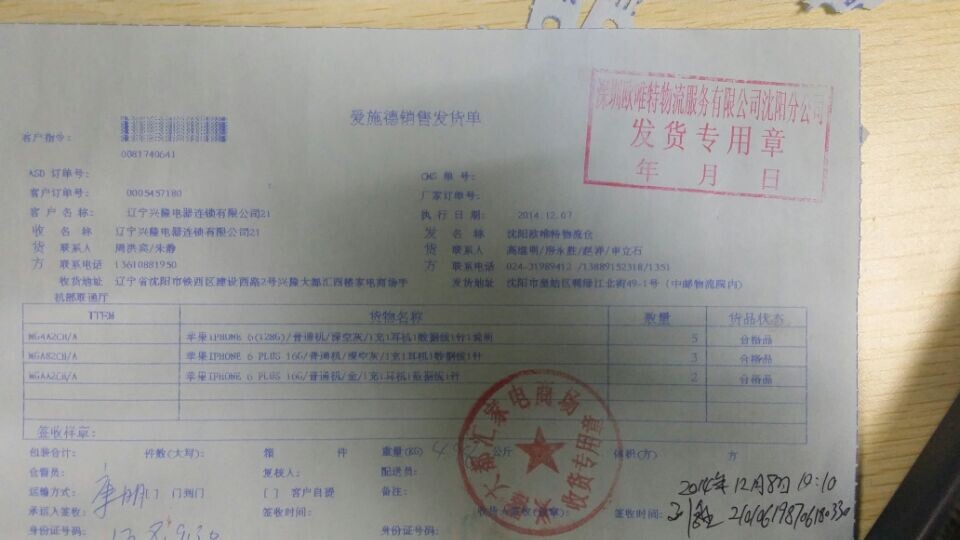 爱施德销售发货单
深圳欧唯特物流服务有限公司沈阳分公司
发货专用章
年 月 日
客户指令:
0081740641
ASD 订单号: CMG 单号:
客户订单号: 0005457180 厂家订单号:
客户名称: 辽宁兴隆电器连锁有限公司21 执行日期: 2014.12.07
收 名称 辽宁兴隆电器连锁有限公司21 发 名称: 沈阳欧唯特物流仓
货 联系人 周洪宾/朱静 货 联系人
方 联系电话 13610881950 方 联系电话 024-31989412 /13889152318/1351
收货地址 辽宁省沈阳市铁西区建设西路2号兴隆大都汇四楼家电商场手 发货地址 沈阳市皇姑区鸭绿江北街49-1号 (中邮物流院内)
机部联通厅
ITEM 货物名称 数量 货品状态
苹果IPHONE 6(128G)/普通机/深空灰/1充1耳机1数据线1针1说明 5 合格品
苹果IPHONE 6 PLUS 16G/普通机/深空灰/1充1耳机1数据线1针 3 合格品
苹果IPHONE 6 PLUS 16G/普通机/金/1充1耳机1数据线1针 2 合格品
签收样章:
大都汇家电商场
收货专用章
包装合计: 件数(大写): 箱 件 重量(KG) 公斤 体积(方) 方
仓管员: 复核人: 配送员:
运输方式: 门到门 [ ] 客户自提 备注:
承运人签收: 签收时间: 收货人签收(盖章): 签收时间:
2014年12月8日 10:10
210106198706180330
身份证号码: 身份证号码: